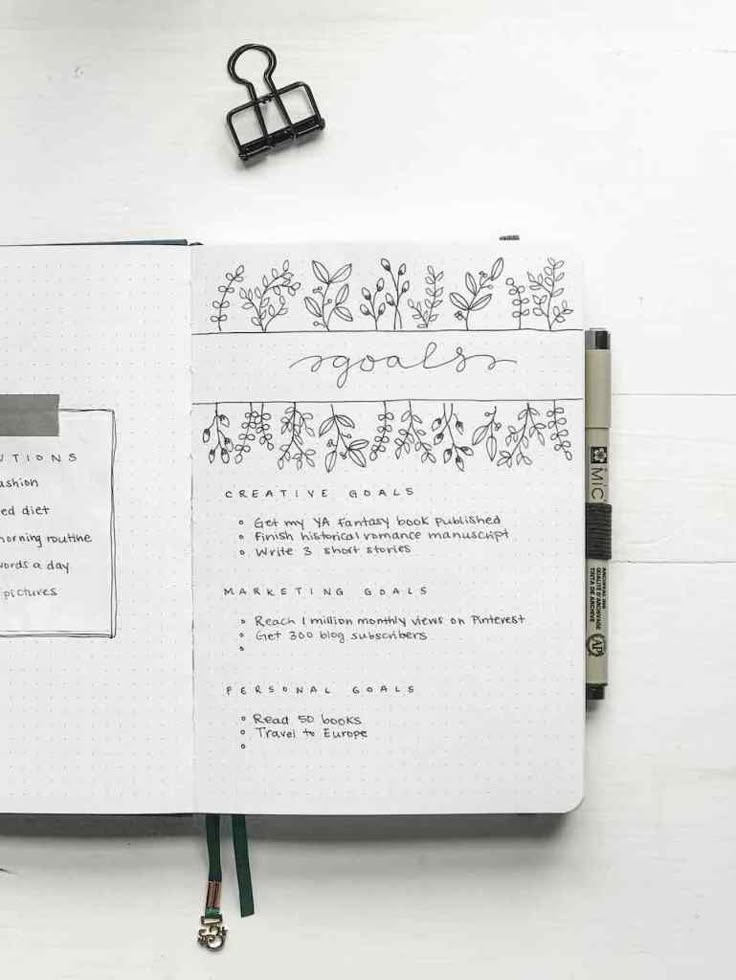 UTIONS
ashion
ed diet
orning routine
words a day
pictures
goals
CREATIVE GOALS
Get my YA fantasy book published
Finish historical romance manuscript
Write 3 short stories
MARKETING GOALS
Reach 1 million monthly views on Pinterest
Get 300 blog subscribers
PERSONAL GOALS
Read 50 books
Travel to Europe
MIC
ARCHIVAL INK
QUALITÉ D'ARCHIVAGE
TINTA DE ARCHIVE
AP